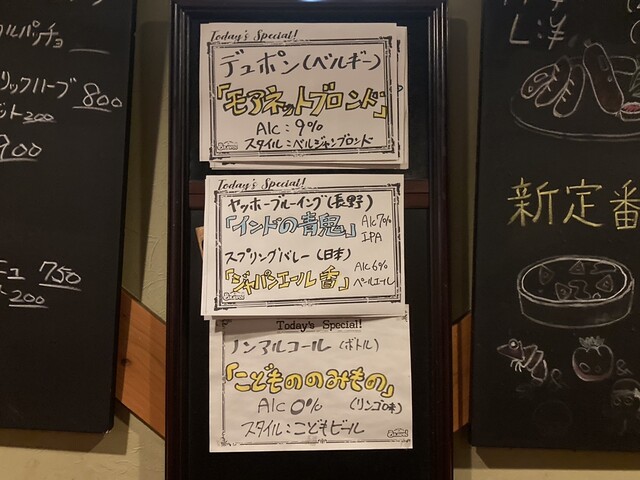 ルパッチョ
リックハーブ 800
ット200
900
750
200
Today's Special!
デュポン(ベルギー)
「モアネットブロンド」
Alc:9%
スタイル:ベルジャンブロンド
Today's Special!
ヤッホーブルーイング(長野)
「インドの青鬼」 Alc7%
IPA
スプリングバレー(日本)
「ジャパンエール香」 Alc6%
ペールエール
Today's Special!
ノンアルコール(ボトル)
「こどもののみもの」
Alc 0% (リンゴ味)
スタイル:こどもビール
L:¥
新定番